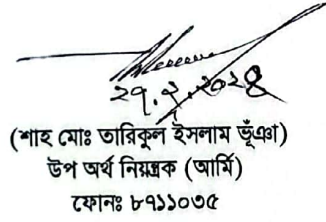 ২৭.২.২০২৪
(শাহ মোঃ তারিকুল ইসলাম ভূঁঞা)
উপ অর্থ নিয়ন্ত্রক (আর্মি)
ফোনঃ ৮৭১১০৩৫